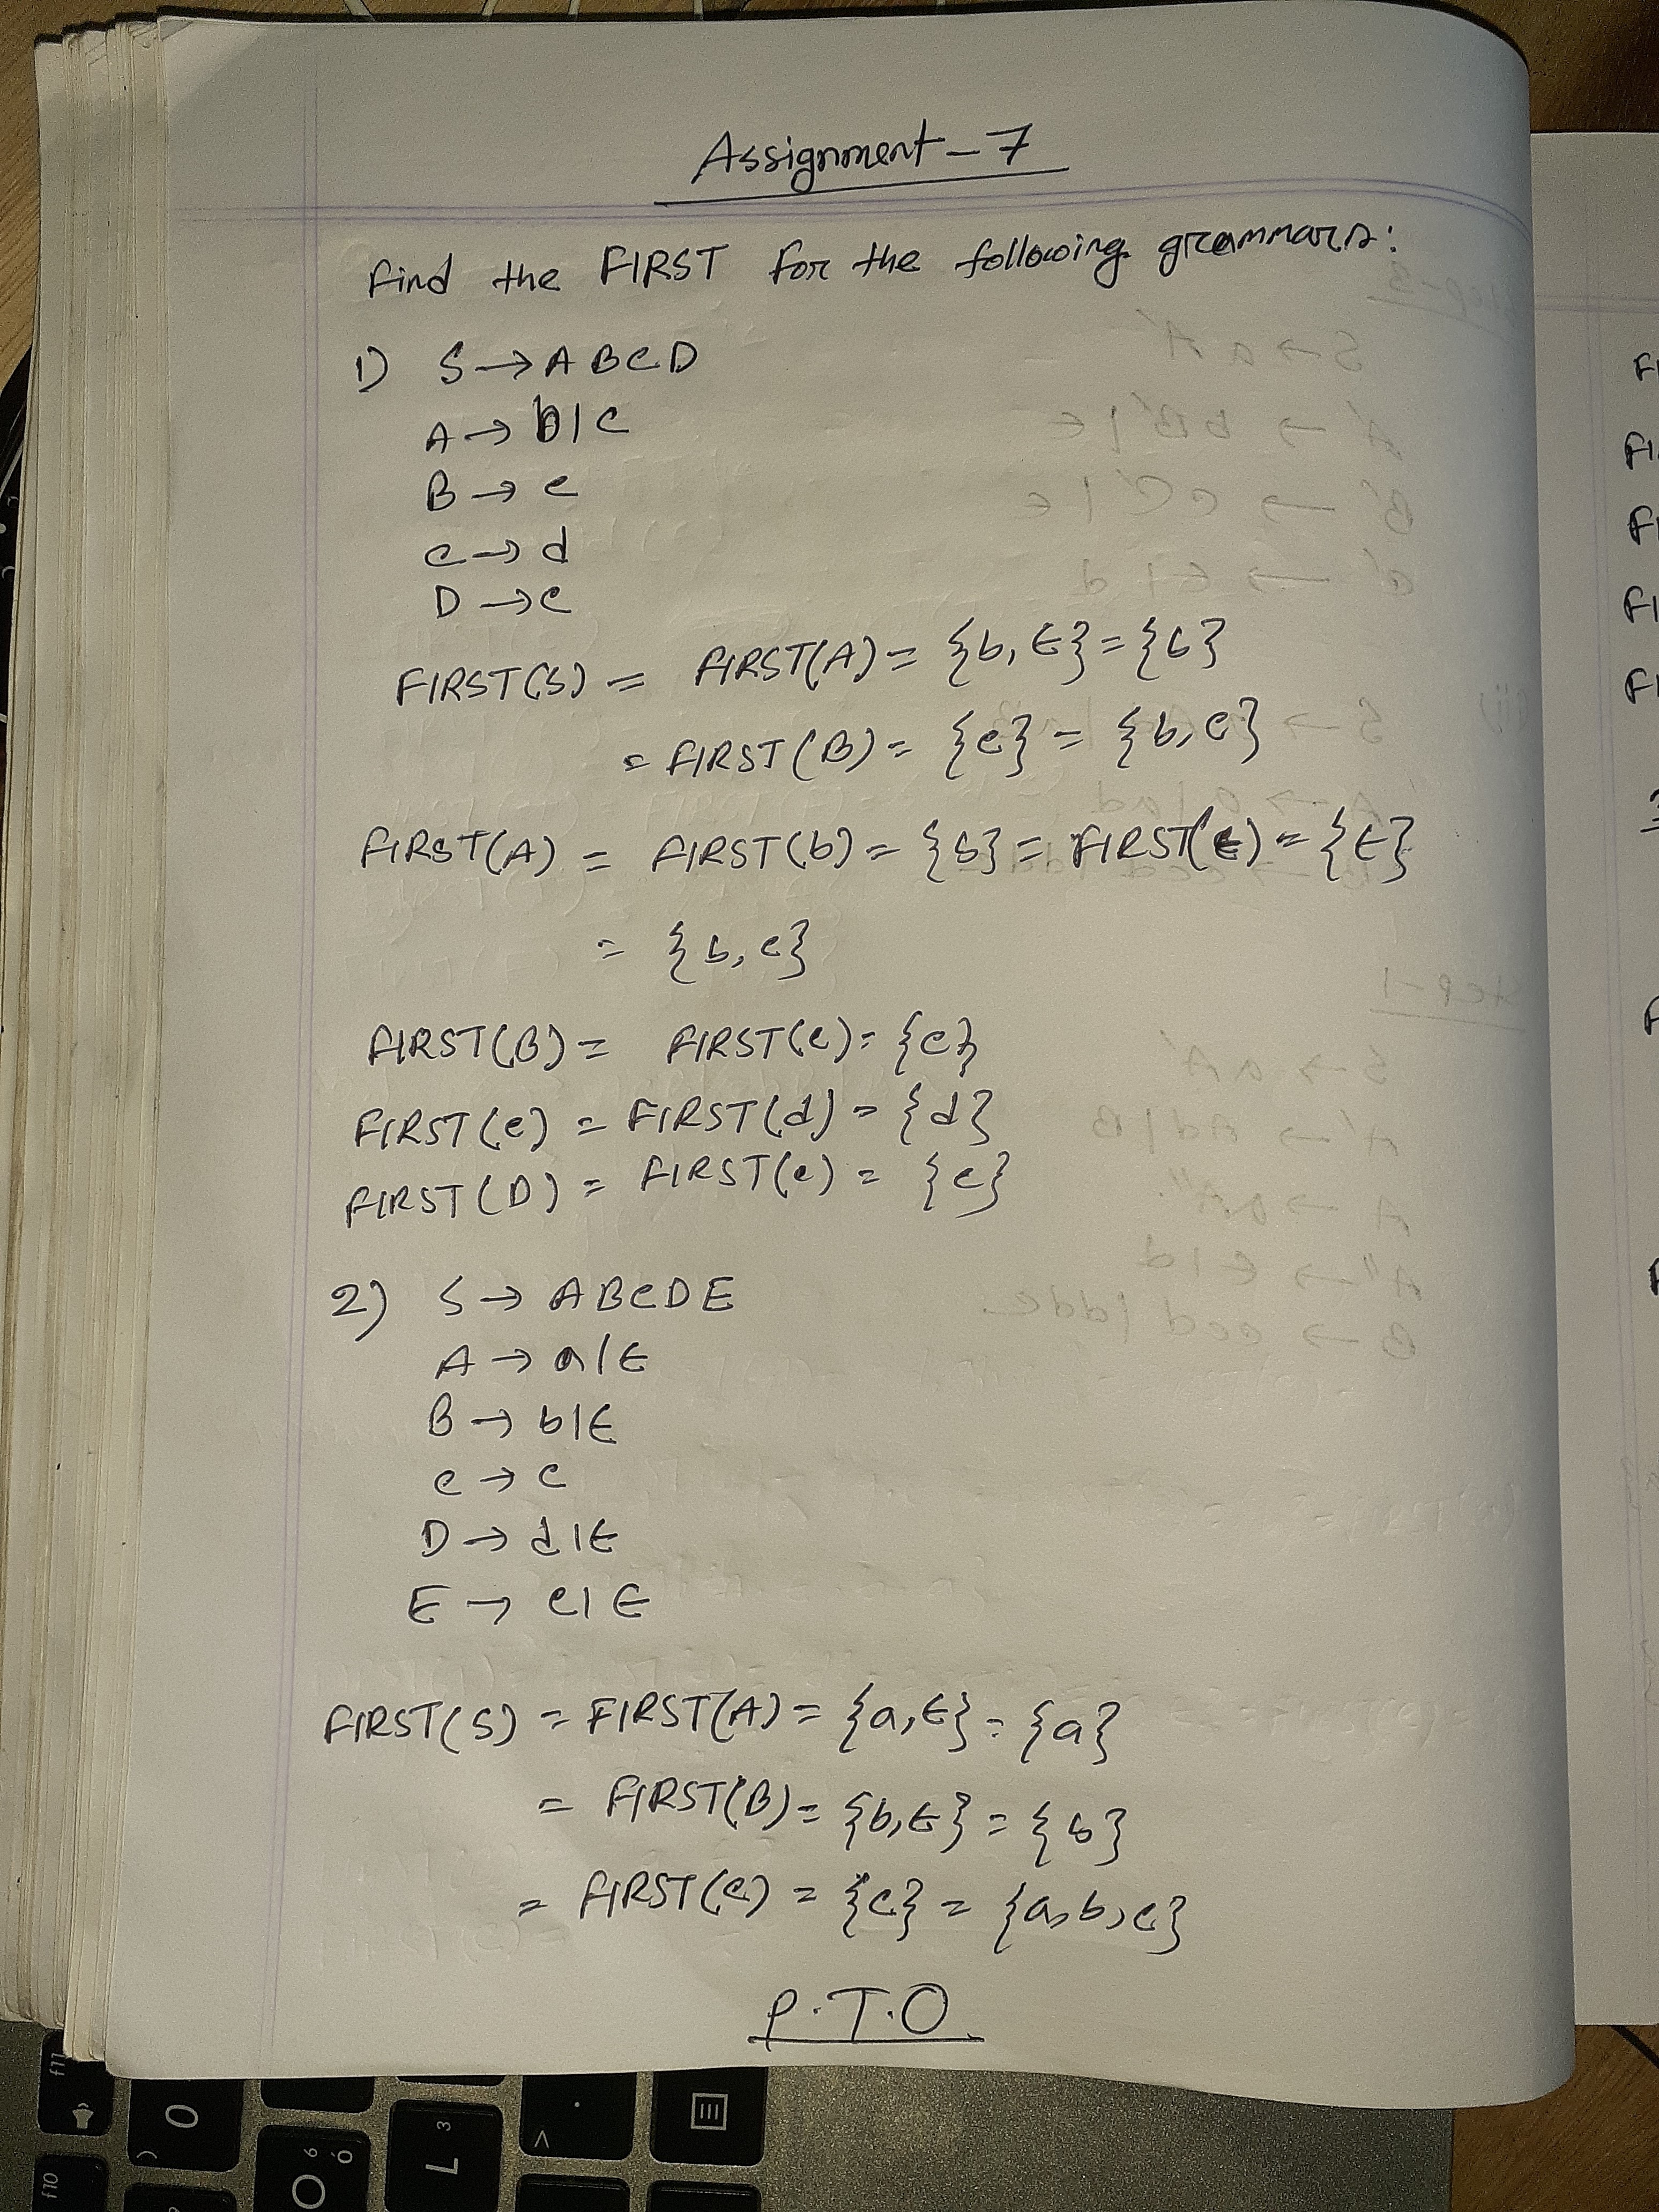 Assignment-7
Find the FIRST for the following grammars:
1) S → ABCD
A → b|c
B → c
C → d
D → e
FIRST(S) = FIRST(A) = {b, ϵ} = {b}
= FIRST(B) = {c} = {b, c}
FIRST(A) = FIRST(b) = {b} = FIRST(ϵ) = {ϵ}
= {b, c}
FIRST(B) = FIRST(c) = {c}
FIRST(C) = FIRST(d) = {d}
FIRST(D) = FIRST(e) = {e}
2) S → ABCDE
A → a|ϵ
B → b|ϵ
C → c
D → d|ϵ
E → e|ϵ
FIRST(S) = FIRST(A) = {a, ϵ} = {a}
= FIRST(B) = {b, ϵ} = {b}
= FIRST(C) = {c} = {a, b, c}
P.T.O.
f11
0
)
L
3
>
.
f10
O
6
ó